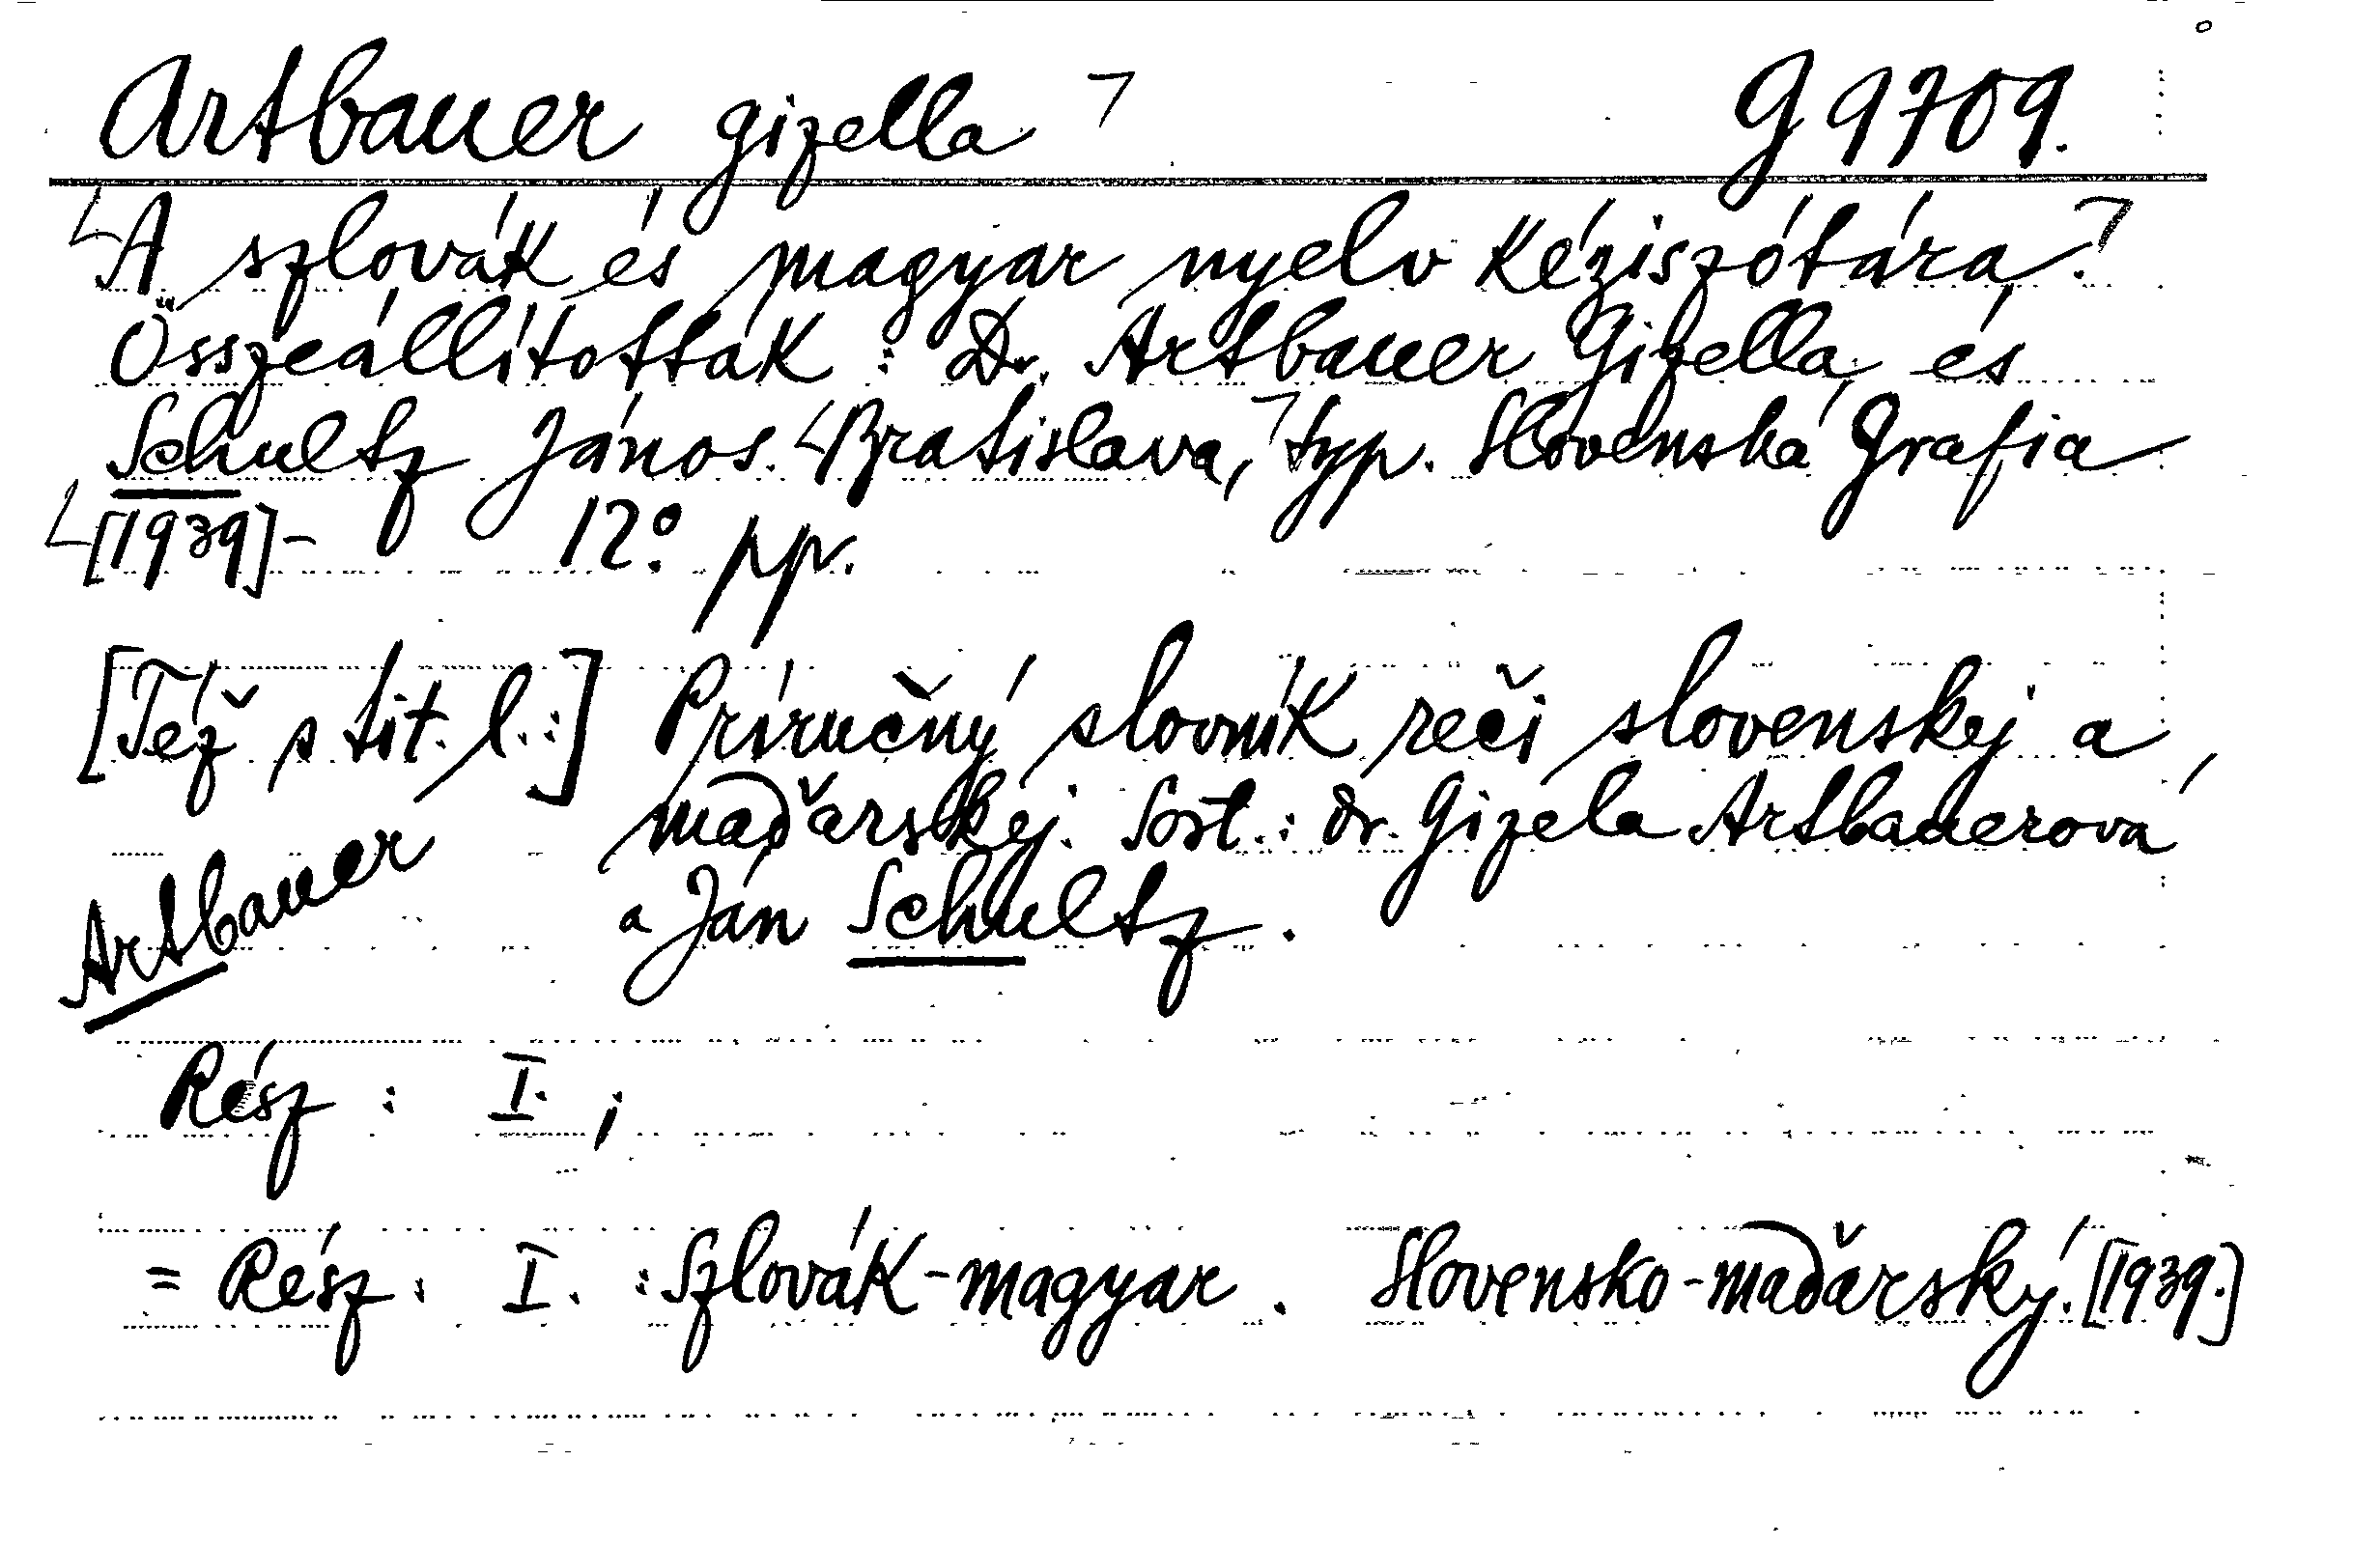 Artbauer Gizella G 9709.
A szlovák és magyar nyelv kéziszótára.
Összeállították: Dr. Artbauer Gizella és
Schultz János. Bratislava, typ. Slovenská Grafia
[1939]- 12°. pp.
[Též s tit. l.:] Príručný slovník reči slovenskej a
maďarskej. Sost.: dr. Gizela Artbauerová
a Ján Schultz.
Artbauer
Rész: I. ;
= Rész: I. : Szlovák-magyar. Slovensko-maďarský. [1939.]